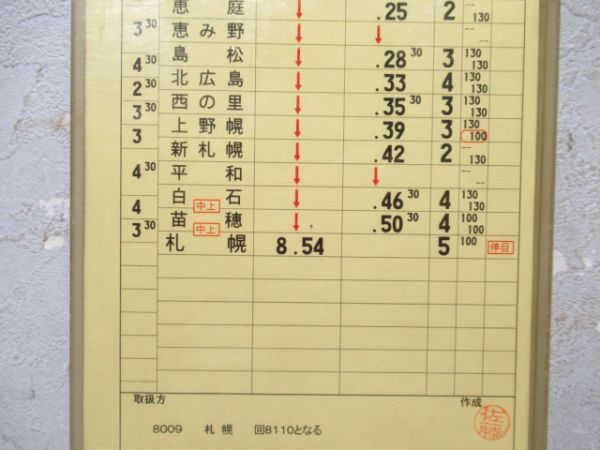 恵庭 ↓ .25 2 130
3 30
恵み野 ↓ ↓ -- --
島松 ↓ .28 30 3 130 130
4 30
北広島 ↓ .33 4 130 130
2 30
西の里 ↓ .35 30 3 130 130
3 30
上野幌 ↓ .39 3 130 100
3
新札幌 ↓ .42 2 -- 130
平和 ↓ ↓ -- --
4 30
白石 中上 ↓ .46 30 4 130 130
4
苗穂 中上 ↓ .50 30 4 100 100
3 30
札幌 8.54 5 100 停目
取扱方 作成
8009 札幌 回8110となる
佐藤